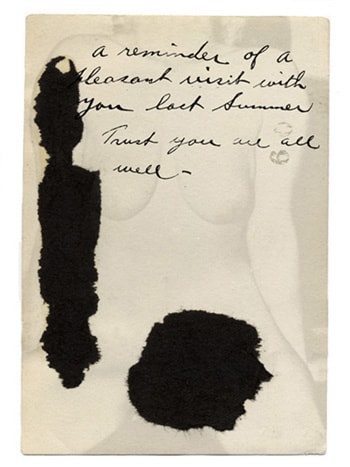 a reminder of a
pleasant visit with
you last Summer
Trust you are all
well –